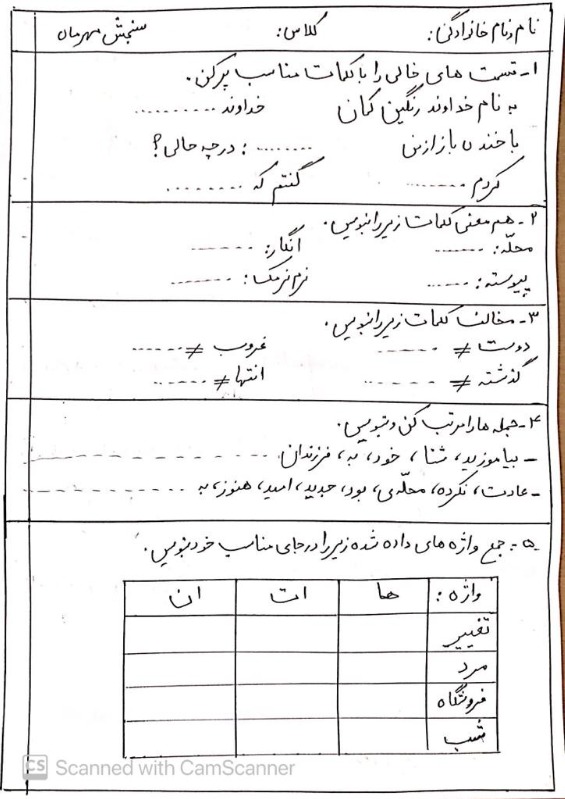 نام و نام خانوادگی: کلاس: سنجش مهرماه
۱- قسمت های خالی را با کلمات مناسب پر کن.
به نام خداوند رنگین کمان خداوند ..........
با خنده باز از من ........ : در چه حالی؟
کردم ........ گفتم که ........
۲- هم معنی کلمات زیر را بنویس.
محلّه: ...... انگار: ......
پیوسته: ...... نرم نرمک: ......
۳- مخالف کلمات زیر را بنویس.
دوست ≠ ...... غروب ≠ ......
گذشته ≠ ...... انتها ≠ ......
۴- جمله ها را مرتب کن و بنویس.
- بیاموزید، شنا، خود، به، فرزندان ......
- عادت، نکرده، محلّه‌ی، بود، جدید، امید، هنوز، به ......
۵: جمع واژه های داده شده زیر را در جای مناسب خود بنویس.
واژه: ها ات ان
تغییر
مرد
فروشگاه
شب
CS Scanned with CamScanner